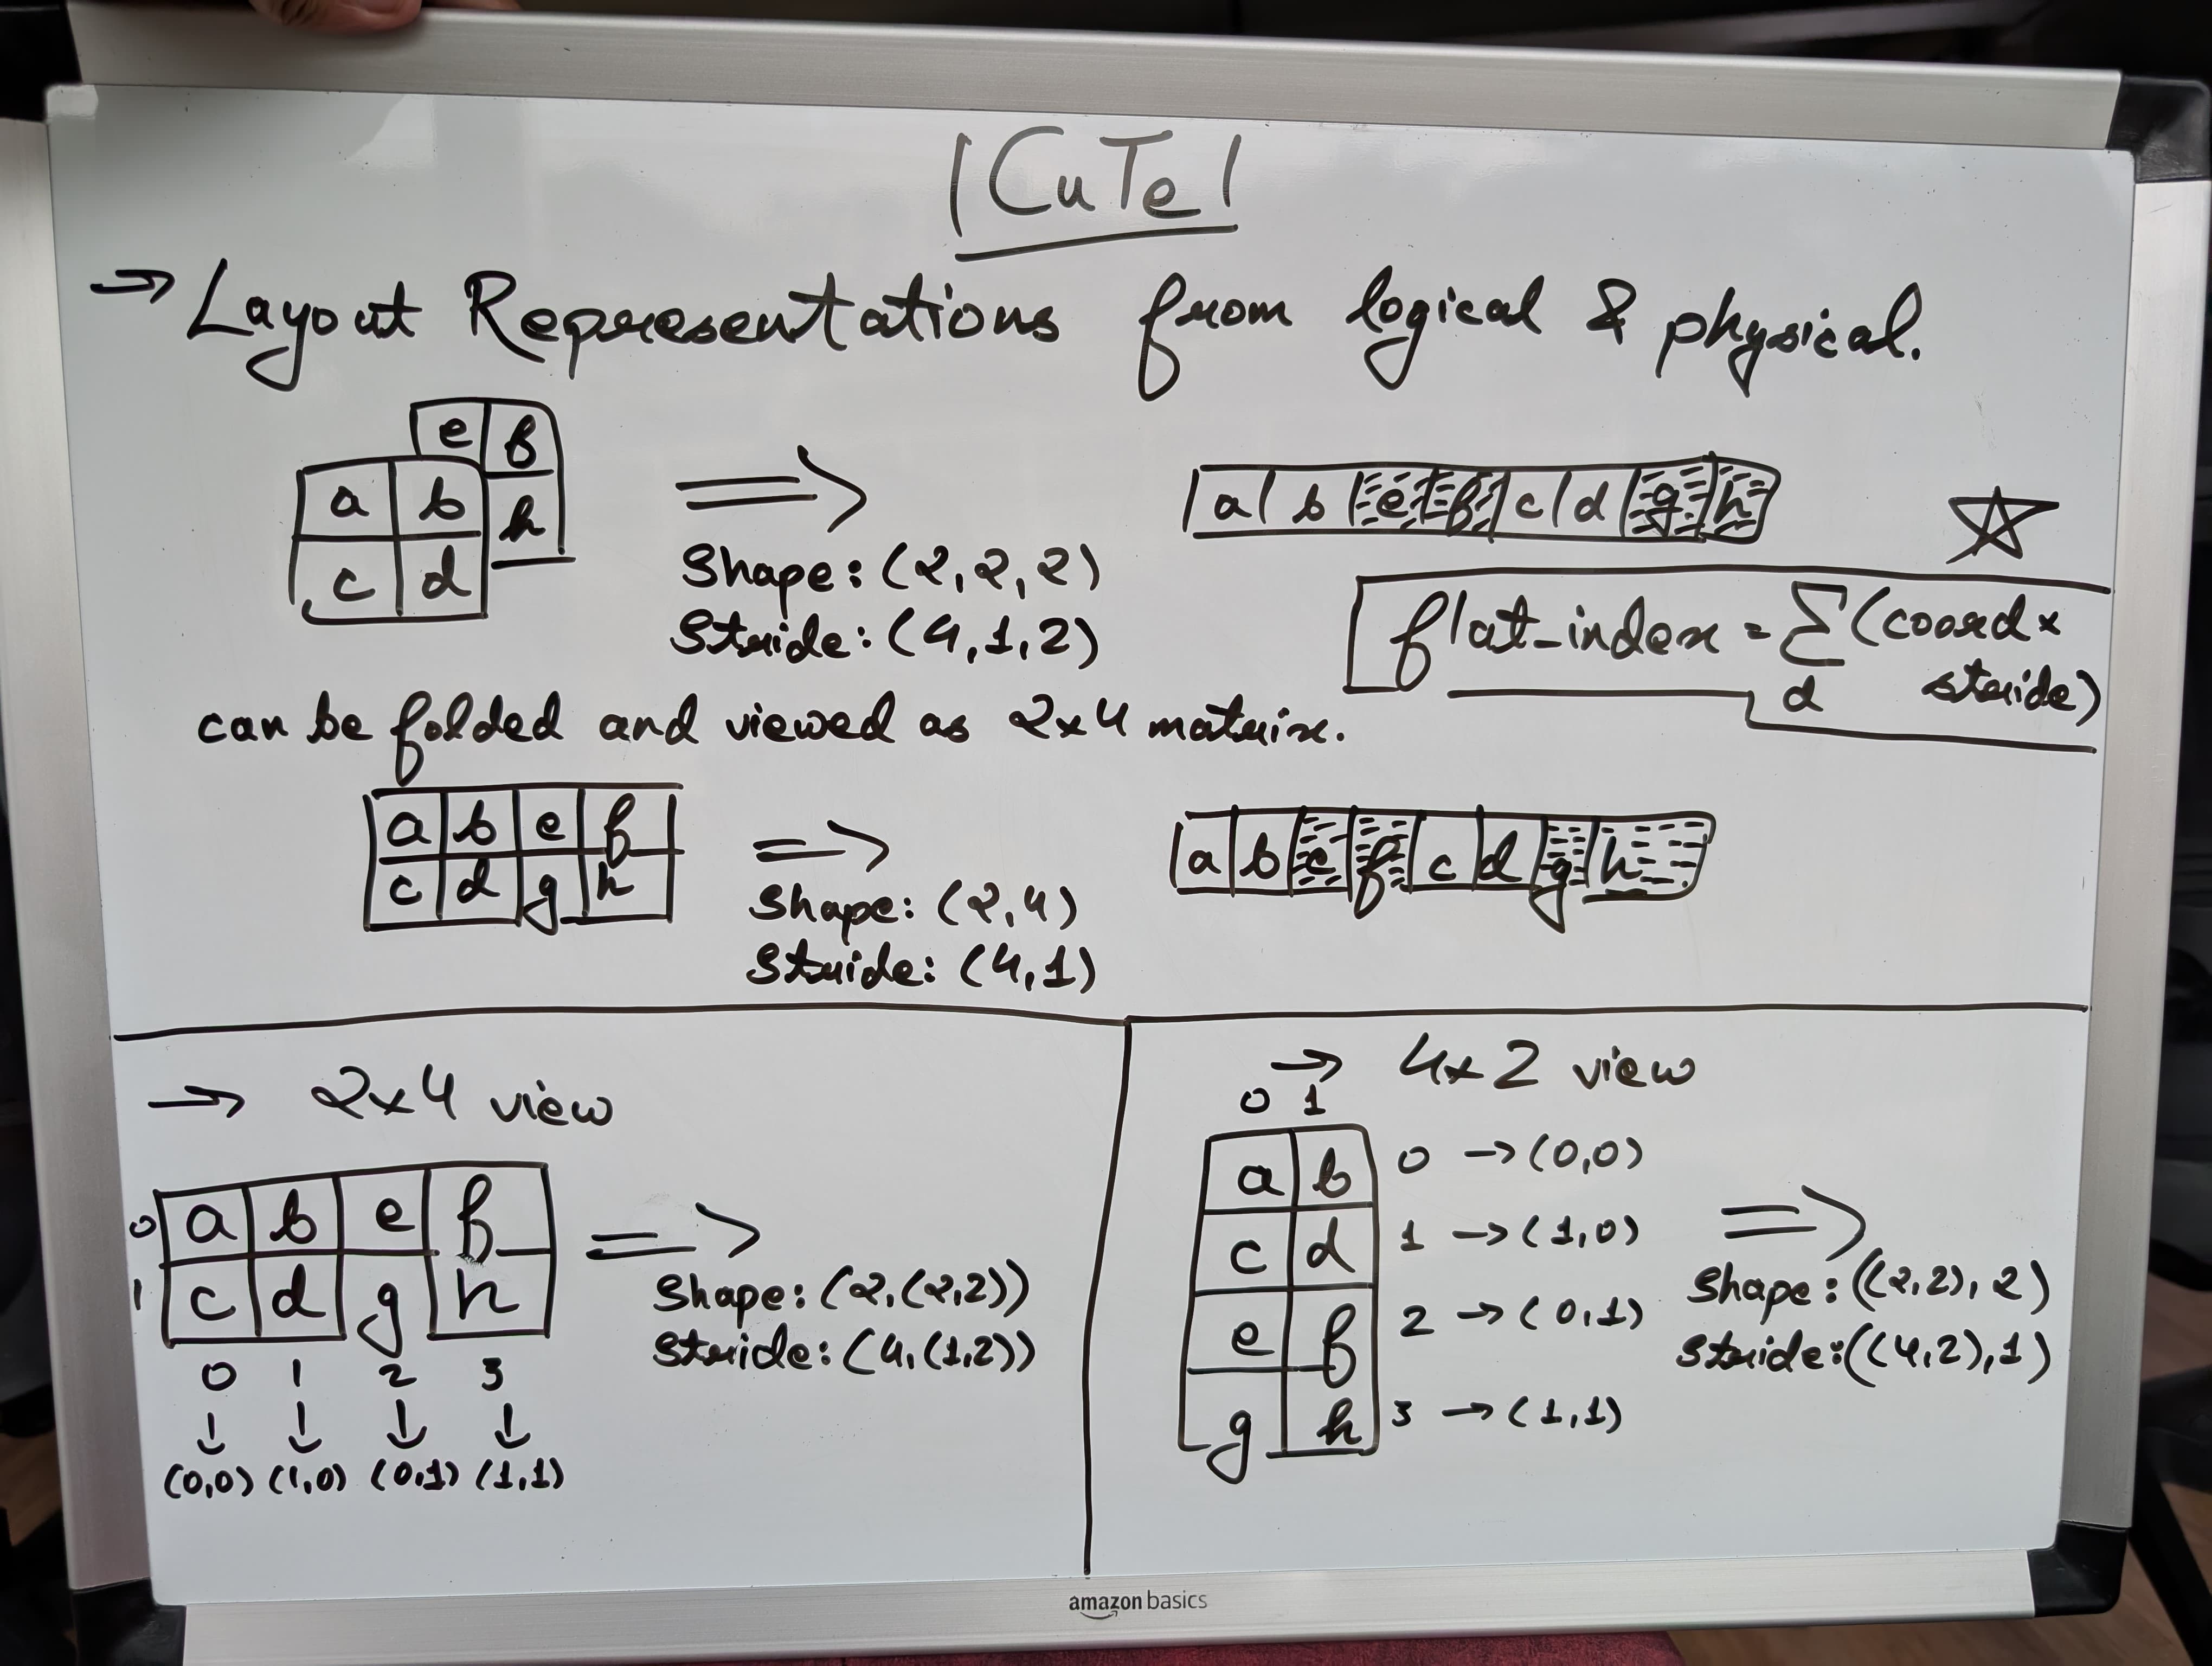 |CuTe|
→ Layout Representations from logical & physical.
e f
a b h
c d
⇒
Shape: (2,2,2)
Stride: (4,1,2)
a b e f c d g h
flat_index = Σ (coord ×
d stride)
can be folded and viewed as 2x4 matrix.
a b e f
c d g h
⇒
Shape: (2,4)
Stride: (4,1)
a b e f c d g h
→ 2x4 view
0 a b e f
1 c d g h
0 1 2 3
↓ ↓ ↓ ↓
(0,0) (1,0) (0,1) (1,1)
⇒
Shape: (2,(2,2))
Stride: (4,(1,2))
→ 4x2 view
0 1
a b 0 → (0,0)
c d 1 → (1,0)
e f 2 → (0,1)
g h 3 → (1,1)
⇒
Shape: ((2,2),2)
Stride: ((4,2),1)
amazon basics